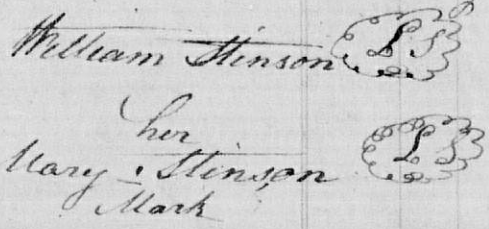 William Stinson LS
her
Mary . Stinson LS
Mark